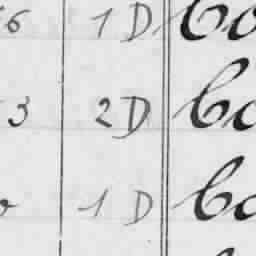 6 1 D Co
3 2 D Co
1 D Co